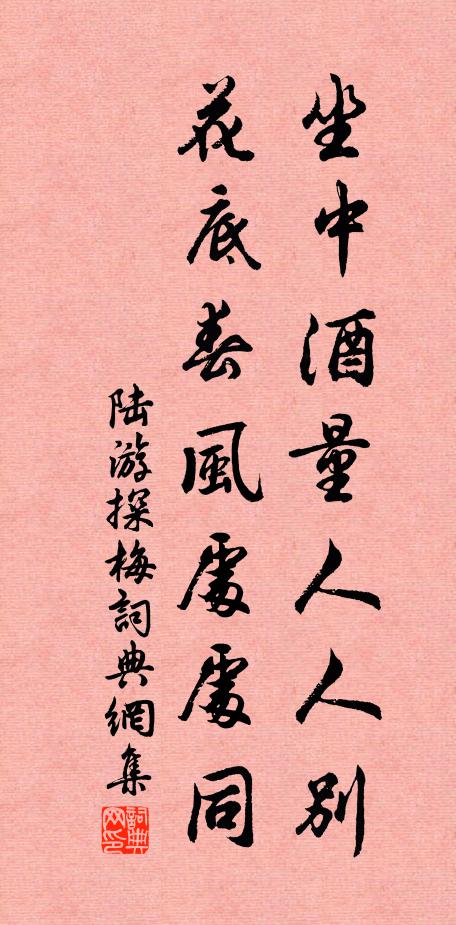 坐中酒量人人別
花底春風處處同
陸游探梅詞典網集
詞典网印